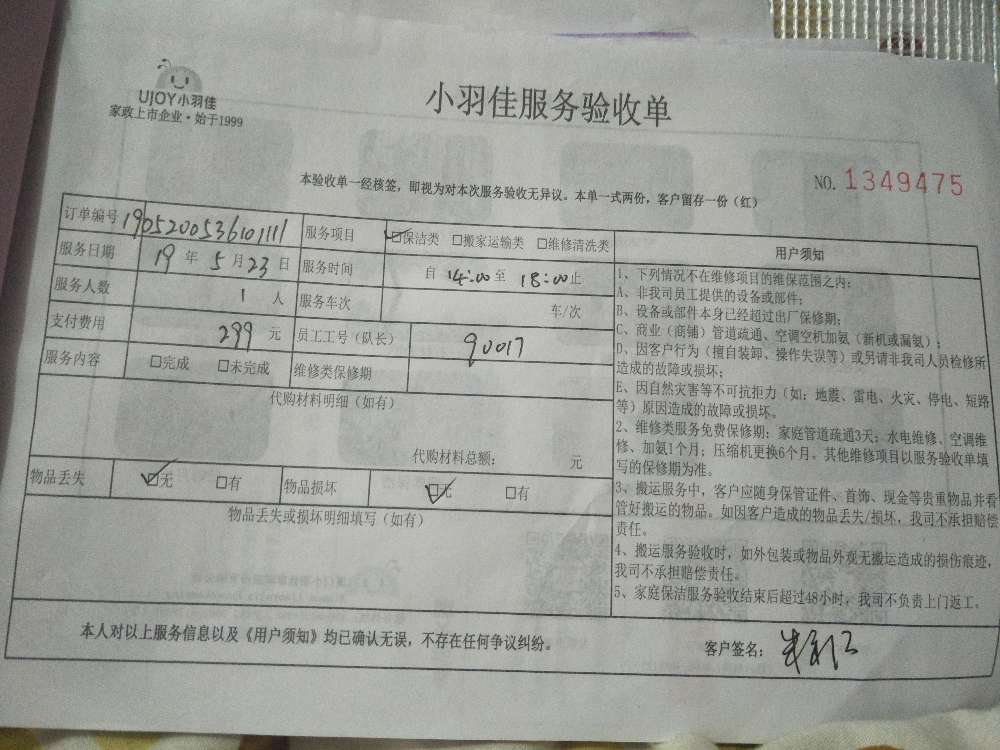 UJOY小羽佳
家政上市企业·始于1999
小羽佳服务验收单
本验收单一经核签，即视为对本次服务验收无异议。本单一式两份，客户留存一份（红）
NO. 1349475
订单编号 1905200536101111 服务项目 ☑保洁类 □搬家运输类 □维修清洗类
服务日期 19 年 5 月 23 日 服务时间 自 14:00 至 18:00 止
服务人数 1 人 服务车次 车/次
支付费用 299 元 员工工号（队长） 90017
服务内容 □完成 □未完成 维修类保修期
代购材料明细（如有）
代购材料总额： 元
物品丢失 ☑无 □有 物品损坏 ☑无 □有
物品丢失或损坏明细填写（如有）
用户须知
1、下列情况不在维修项目的维保范围之内：
A、非我司员工提供的设备或部件；
B、设备或部件本身已经超过出厂保修期；
C、商业（商铺）管道疏通、空调空机加氨（新机或漏氨）；
D、因客户行为（擅自装卸、操作失误等）或另请非我司人员检修所
造成的故障或损坏；
E、因自然灾害等不可抗拒力（如：地震、雷电、火灾、停电、短路
等）原因造成的故障或损坏。
2、维修类服务免费保修期：家庭管道疏通3天；水电维修、空调维
修、加氨1个月；压缩机更换6个月。其他维修项目以服务验收单填
写的保修期为准。
3、搬运服务中，客户应随身保管证件、首饰、现金等贵重物品并看
管好搬运的物品。如因客户造成的物品丢失/损坏，我司不承担赔偿
责任。
4、搬运服务验收时，如外包装或物品外观无搬运造成的损伤痕迹，
我司不承担赔偿责任。
5、家庭保洁服务验收结束后超过48小时，我司不负责上门返工。
本人对以上服务信息以及《用户须知》均已确认无误，不存在任何争议纠纷。
客户签名：